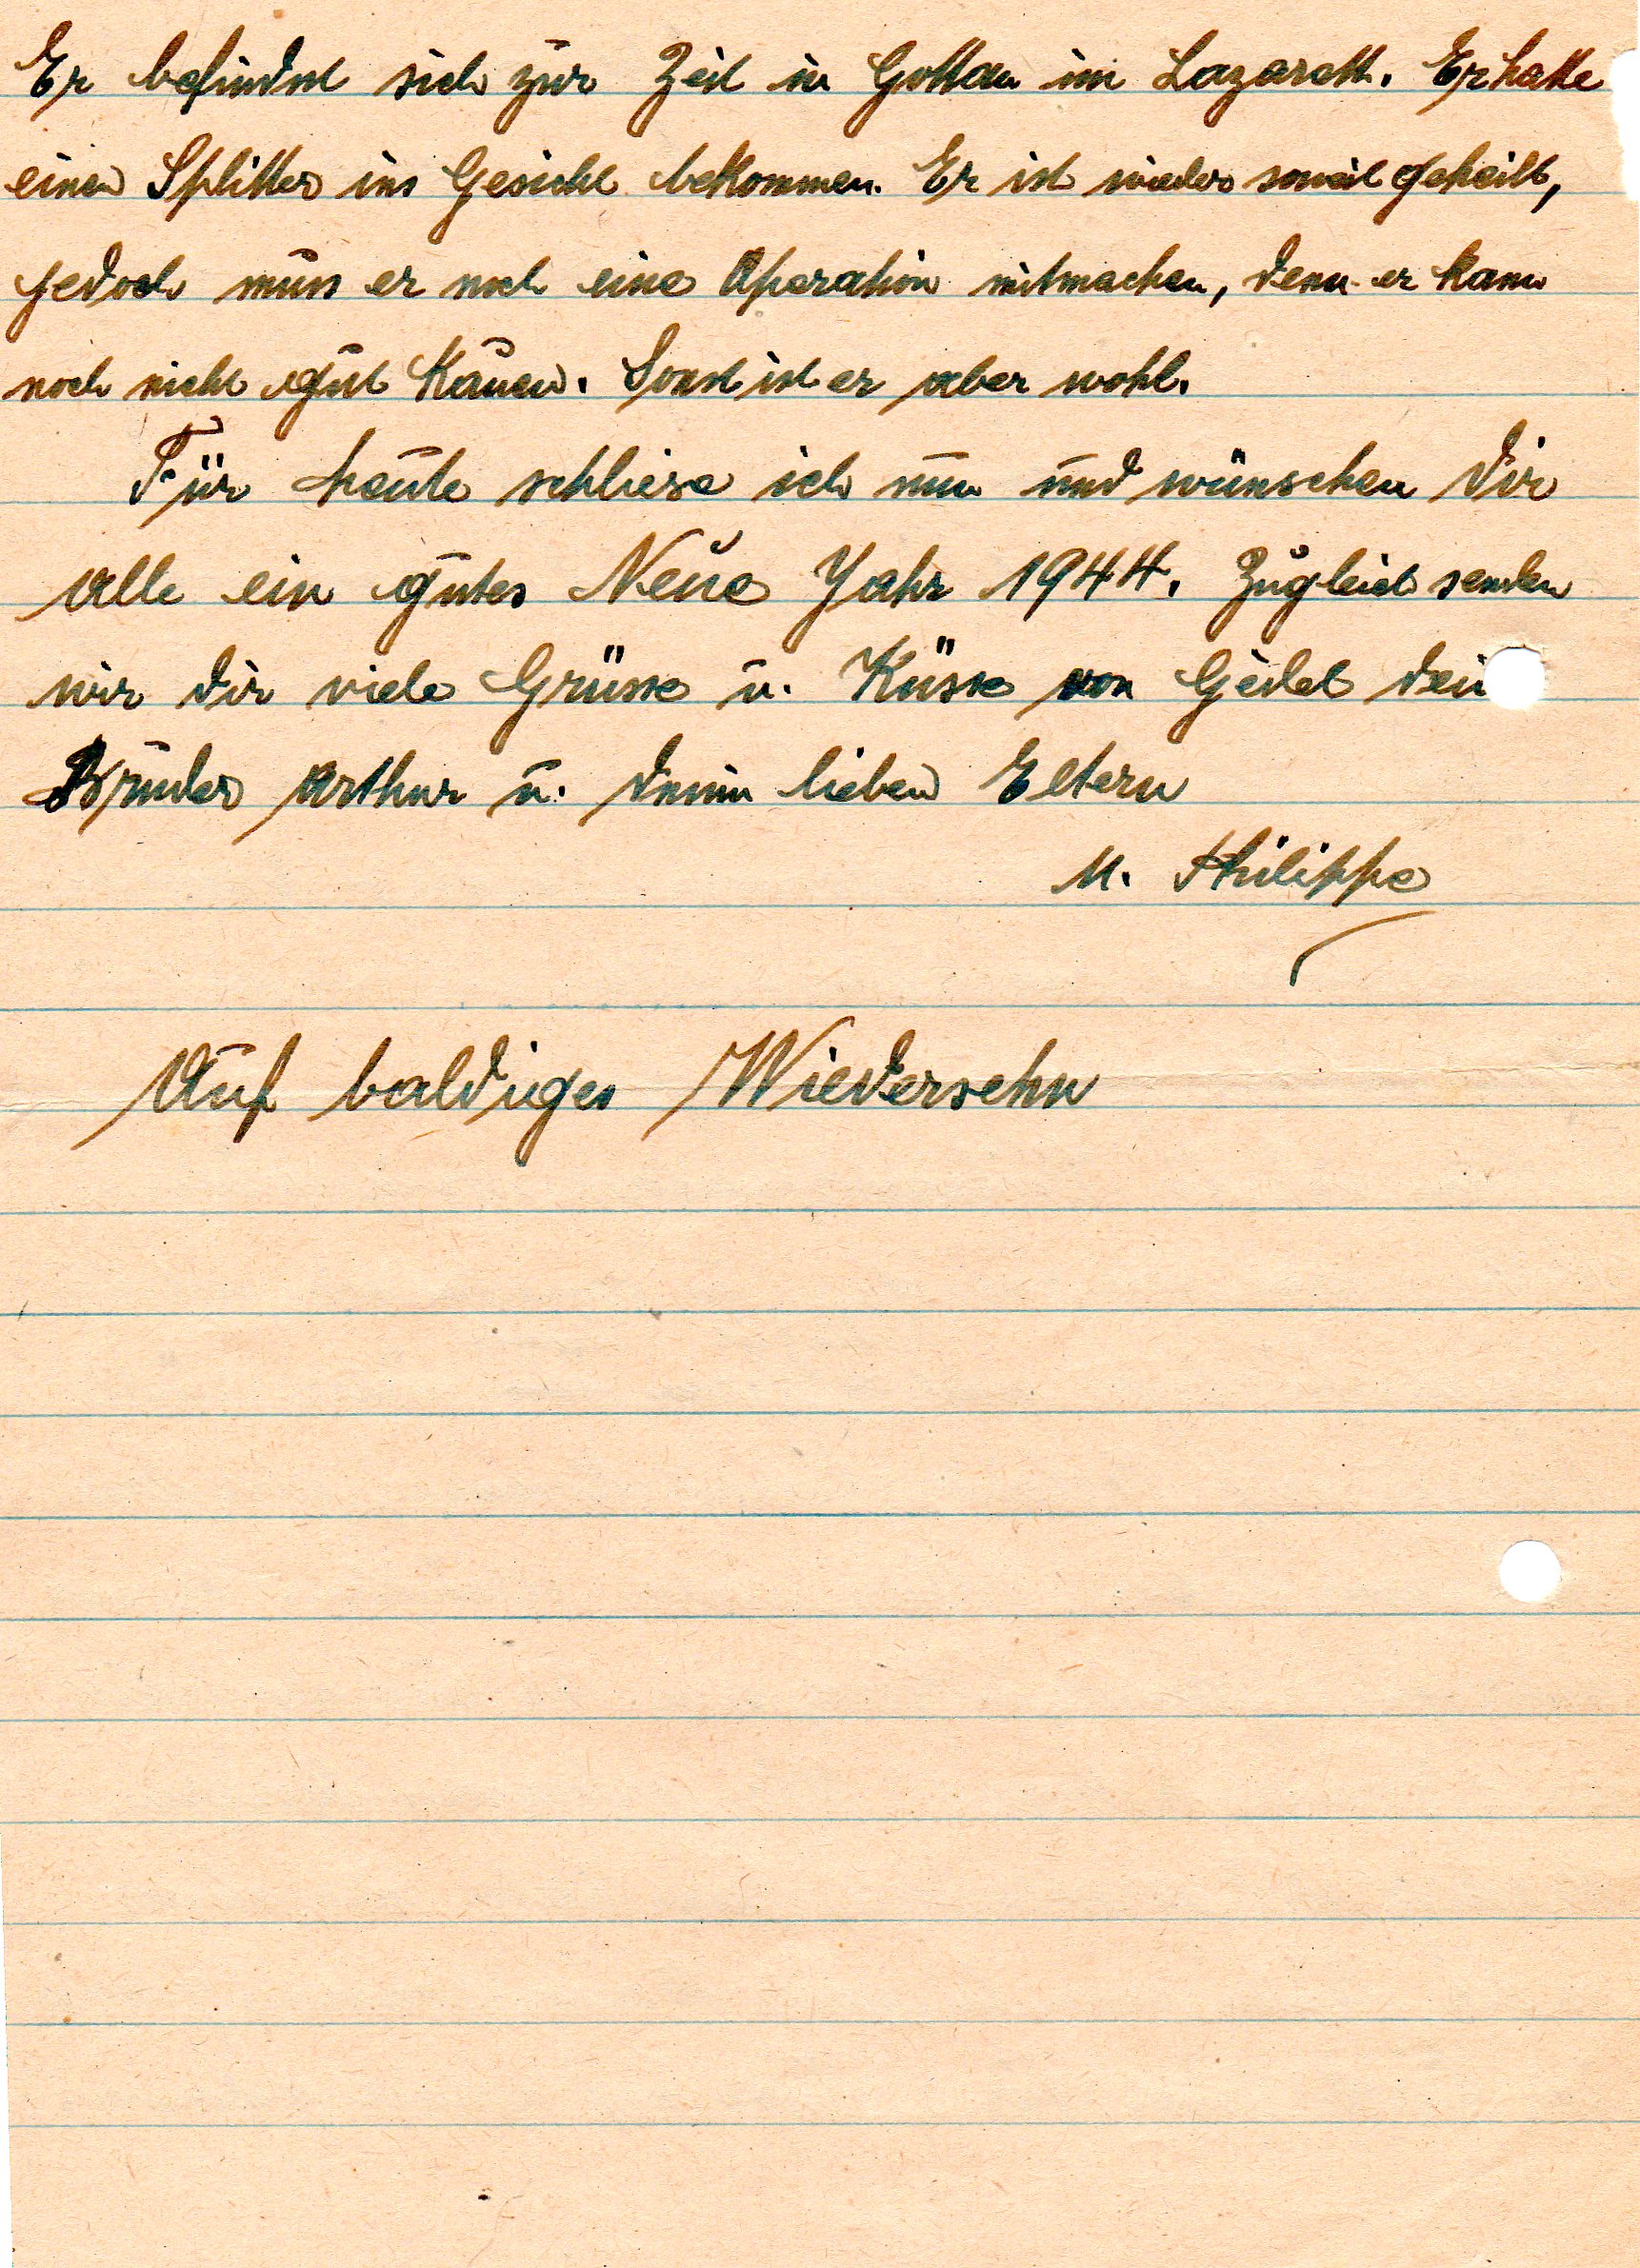 Er befindet sich zur Zeit in Gottau im Lazarett. Er hatte
einen Splitter ins Gesicht bekommen. Er ist wieder soweit geheilt,
jedoch muss er noch eine Operation mitmachen, denn er kann
noch nicht gut kauen. Sonst ist er aber wohl.
Für heute schliese ich nun und wünschen Dir
alle ein gutes Neue Jahr 1944. Zugleich senden
wir Dir viele Grüsse u. Küsse von Dein
Bruder Arthur u. Deinen lieben Eltern
M. Philippe
Auf baldiges Wiedersehn